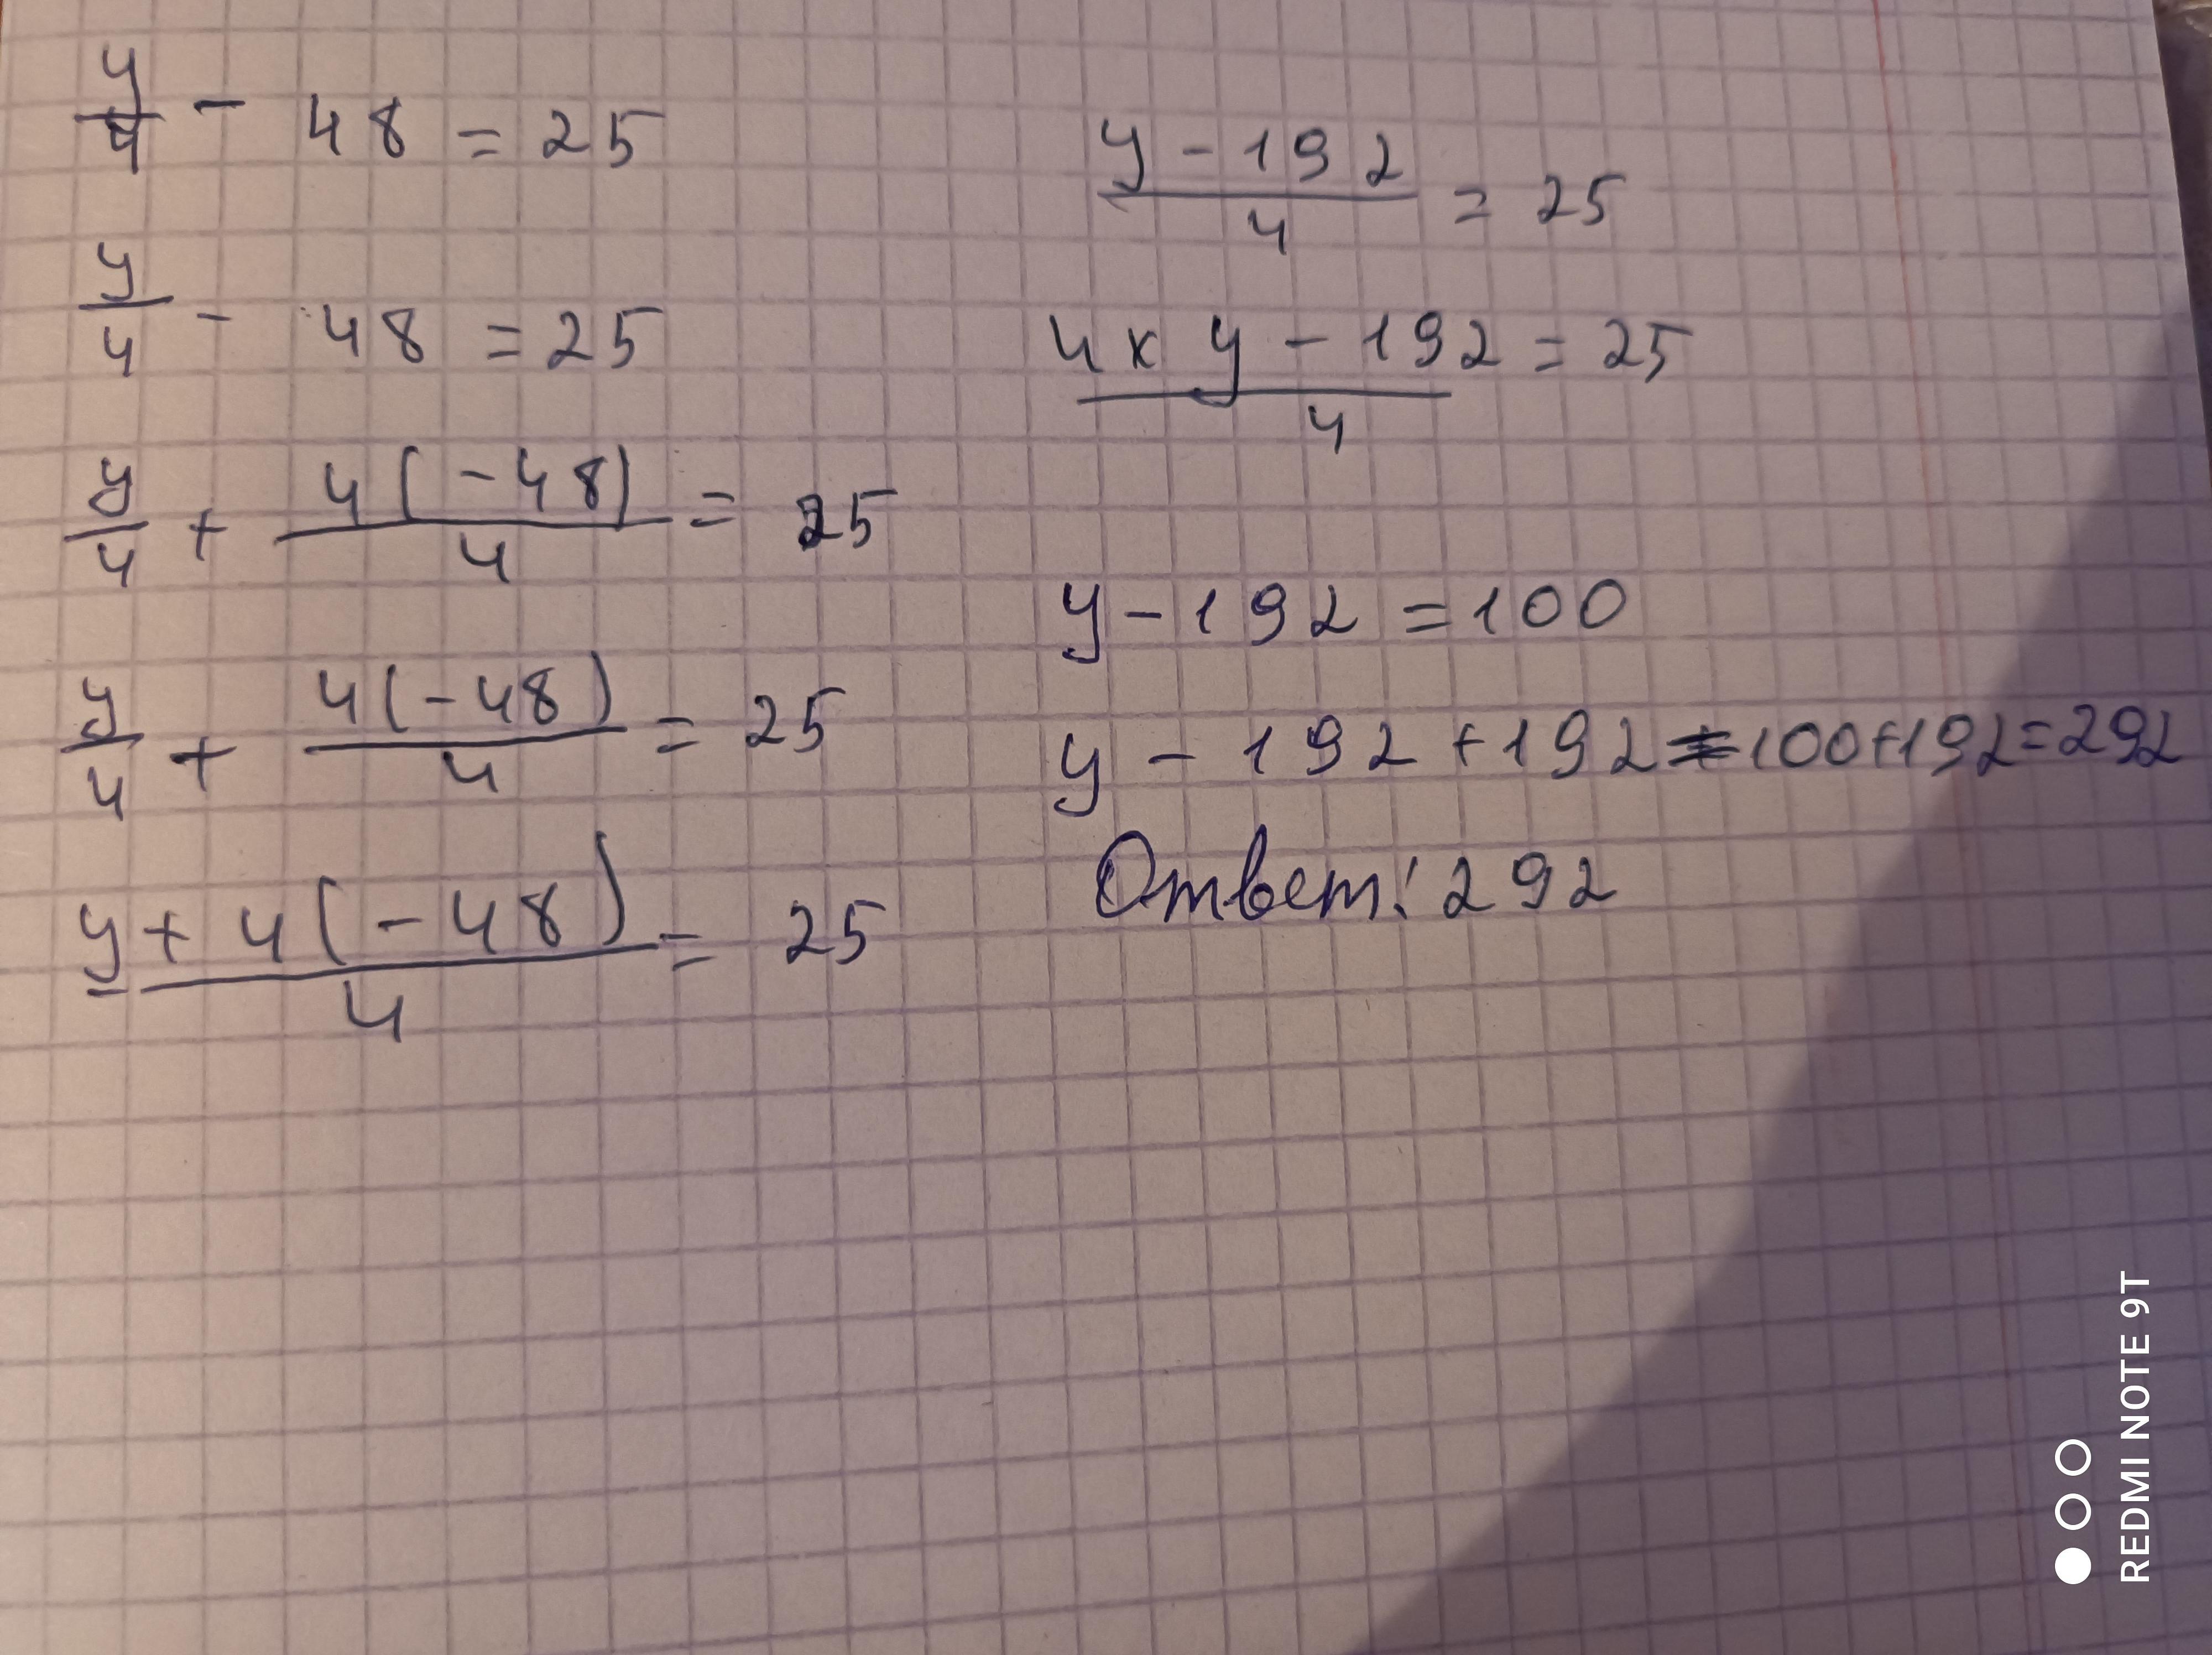 y/4 - 48 = 25
y/4 - 48 = 25
y/4 + 4(-48)/4 = 25
y/4 + 4(-48)/4 = 25
y + 4(-48)/4 = 25
y - 192/4 = 25
4 x y - 192/4 = 25
y - 192 = 100
y - 192 + 192 = 100 + 192 = 292
Ответ: 292
REDMI NOTE 9T